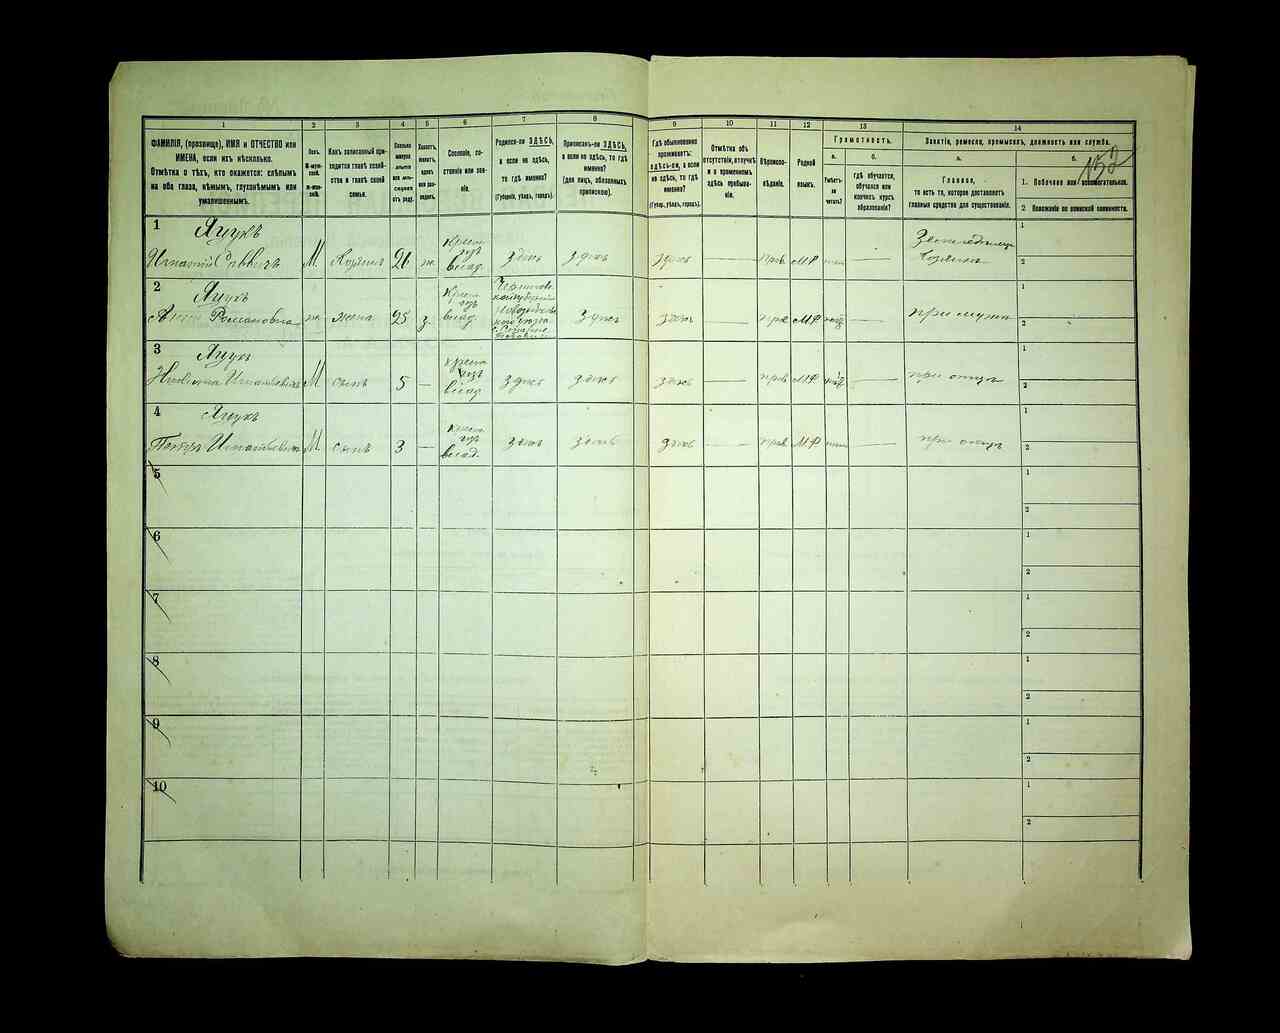 152
1 2 3 4 5 6 7 8 9 10 11 12 13 14
ФАМИЛІЯ, (прозвище), ИМЯ и ОТЧЕСТВО или
ИМЕНА, если ихъ нѣсколько.
Отмѣтка о тѣхъ, кто окажется: слѣпымъ
на оба глаза, нѣмымъ, глухонѣмымъ или
умалишеннымъ.
Полъ.
М-муж-
ской.
Ж-жен-
скій.
Какъ записанный при-
ходится главѣ хозяй-
ства и главѣ своей
семьи.
Сколько
минуло
лѣтъ
или мѣ-
сяцевъ
отъ роду.
Холостъ,
женатъ,
вдовъ
или раз-
веденъ.
Сословіе, со-
стояніе или зва-
ніе.
Родился-ли ЗДѢСЬ,
а если не здѣсь,
то гдѣ именно?
(Губернія, уѣздъ, городъ).
Приписанъ-ли ЗДѢСЬ,
а если не здѣсь, то гдѣ
именно?
(Для лицъ, обязанныхъ
припискою).
Гдѣ обыкновенно
проживаетъ:
здѣсь-ли, а если
не здѣсь, то гдѣ
именно?
(Губер., уѣздъ, городъ).
Отмѣтка объ
отсутствіи, отлучкѣ
и о временномъ
здѣсь пребыва-
ніи.
Вѣроиспо-
вѣданіе.
Родной
языкъ.
Грамотность.
а.
Умѣетъ-
ли
читать?
б.
гдѣ обучается,
обучался или
кончилъ курсъ
образованія?
Занятіе, ремесло, промыселъ, должность или служба.
а.
Главное,
то есть то, которое доставляетъ
главныя средства для существованія.
б.
1. Побочное или вспомогательное.
2 Положеніе по воинской повинности.
1
Яцукъ
Игнатій Саввичъ М. Хозяинъ ж. здѣсь здѣсь здѣсь — прав МР —
Крест
влад.
Земледѣлецъ
Хозяинъ
1
2
2
Яцукъ
Анна Романовна ж. жена 25 з. здѣсь здѣсь — МР — при мужѣ
Крест
влад.
1
2
3
Яцукъ
Игнатьевичъ М сынъ 5 — здѣсь здѣсь здѣсь — прав МР — при отцѣ
крест
влад
1
2
4
Яцукъ
Петръ Игнатьевичъ М. сынъ 3 — здѣсь здѣсь здѣсь — прав МР — при отцѣ
крест
влад.
1
2
5
1
2
6
1
2
7
1
2
8
1
2
9
1
2
10
1
2